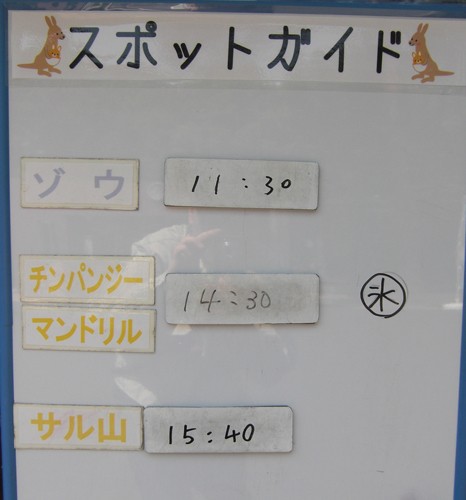 スポットガイド
ゾウ 11:30
チンパンジー
マンドリル 14:30 氷
サル山 15:40